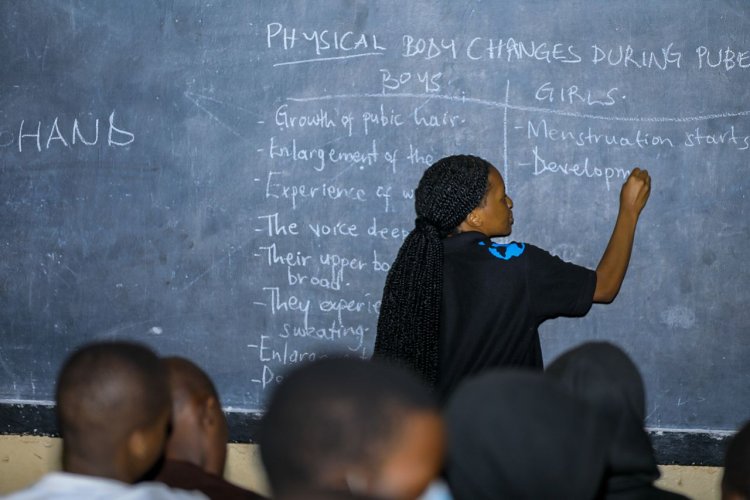 HAND
PHYSICAL BODY CHANGES DURING PUBE
BOYS
- Growth of pubic hair.
- Enlargement of the
- Experience of w
- The voice deep
- Their upper bo
broad.
- They experie
sweating.
- Enlarg
GIRLS.
- Menstruation starts
- Developm